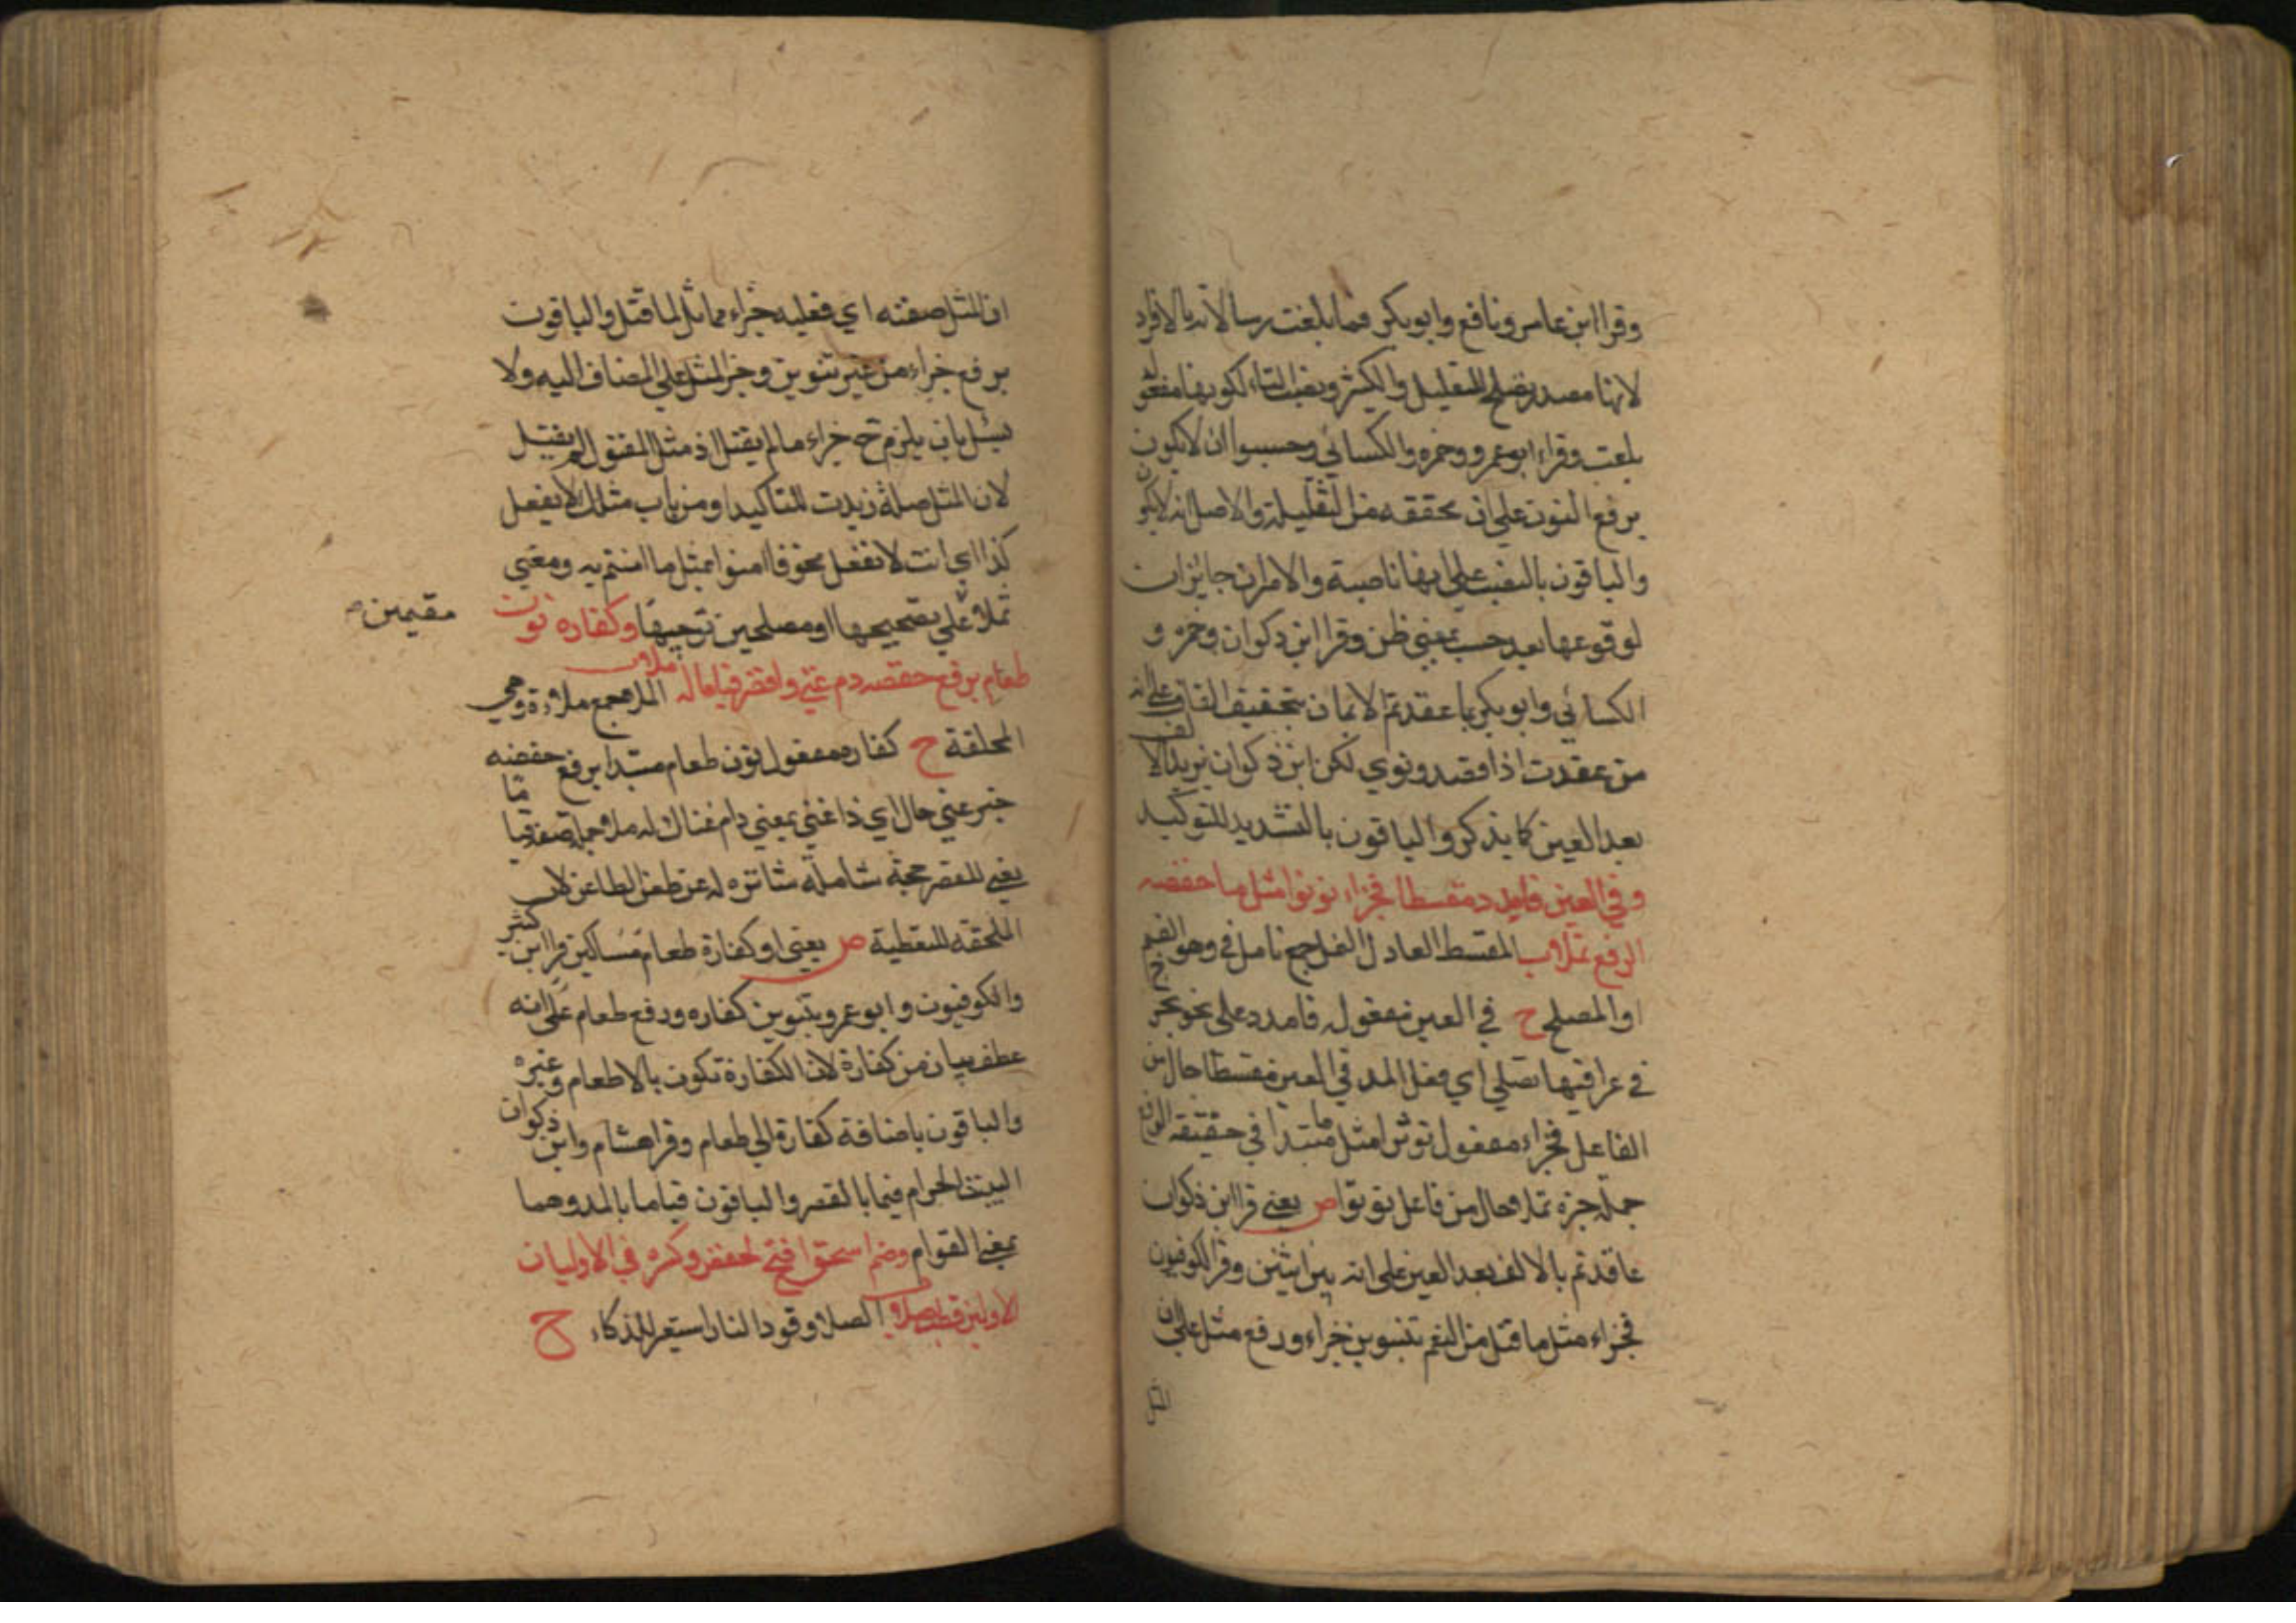 وقرا ابن عامر ونافع وابوبكر فما بلغت رسالاته بالافراد
لانها مصدر يصلح للتقليل والكثير وبنصب التاء لكونها مفعول
بلغت وقراء ابوعمرو وحمزه والكسائي وحسبوا ان لاتكون
برفع النون على ان محققه من الثقيلة والاصل انه لايكون
والباقون بالنصب على انها ناصبة والامران جائزان
لوقوعها بعد حسب بمعني ظن وقرا ابن ذكوان وحمزه و
الكسائي وابوبكر بما عقدتم الايمان بتخفيف القاف على انه
من عقدت اذا قصد ونوي لكن ابن ذكوان يزيد الالف
بعد العين كما يذكر والباقون بالتشديد للتوكيد
وفي العين فامدد مقسطا فجزاء نونوا مثل ما خفضه
الرفع ثملا ب المقسط العادل الثمل جمع ثامل في وهو القيم
اوالمصلح ح في العين مفعول فامدد على نحو يجرح
في عراقيها نصلي اي فعل المد في العين مقسطا حال من
الفاعل فجزاء مفعول نونوا مثل مبتدا ما في حقيقه الرفع
جملة خبره ثملا حال من فاعل نونوا ص يعني قرا ابن ذكوان
عاقدتم بالالف بعد العين على انه بين اثنين وقرا الكوفيون
فجزاء مثل ما قتل من النعم بتنوين جزاء ورفع مثل على ان
المثل
ان المثل صفته اي فعليه جزاء مماثل لما قتل والباقون
برفع جزاء من غير تنوين وجر المثل على المضاف اليه ولا
يسئل بان يلزم ح جزاء ما لم يقتل اذ مثل المقتول لم يقتل
لان المثل صلة زيدت للتاكيد او من باب مثلك لا يفعل
كذا اي انت لا تفعل نحو فا امنوا بمثل ما امنتم به ومعني
ثملا على تصحيحها او مصلحين توجيهها وكفاره نون
مقيمين
طعام برفع خفضه دم غني واقصر قياما له ملا ب الملا جمع ملاءة وهي
الملحقة ح كفاره مفعول نون طعام مبتدا برفع خفضه
خبر غني حال اي ذا غني بمعني دام غناك له ملا جملة صفة قياما
يعني للقصر حجة شاملة ساتره له عن طعن الطاعن كلاب
الملحقه للتغطية ص يعني او كفارة طعام مساكين قرا ابن كثير
والكوفيون وابوعمرو بتنوين كفاره ورفع طعام على انه
عطف بيان من كفارة لان الكفارة تكون بالاطعام وغيره
والباقون باضافة كفارة الي طعام وقرا هشام وابن ذكوان
البيت الحرام قيما بالقصر والباقون قياما بالمد وهما
بمعني القوام وضم استحق افتح لحفص وكسره في الاوليان
الاولين فطب صلا ب الصلا وقود النار استعير للذكاء ح